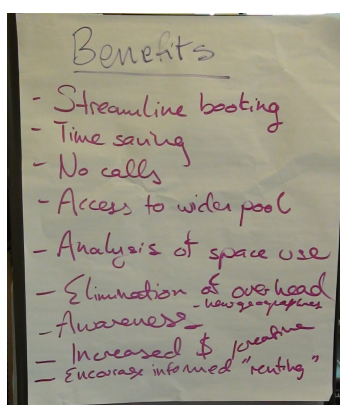 Benefits
- Streamline booking
- Time saving
- No calls
- Access to wider pool
- Analysis of space use
- Elimination of overhead
- Awareness - new geographies
- Increased $ /creative
- Encourage informed "renting"